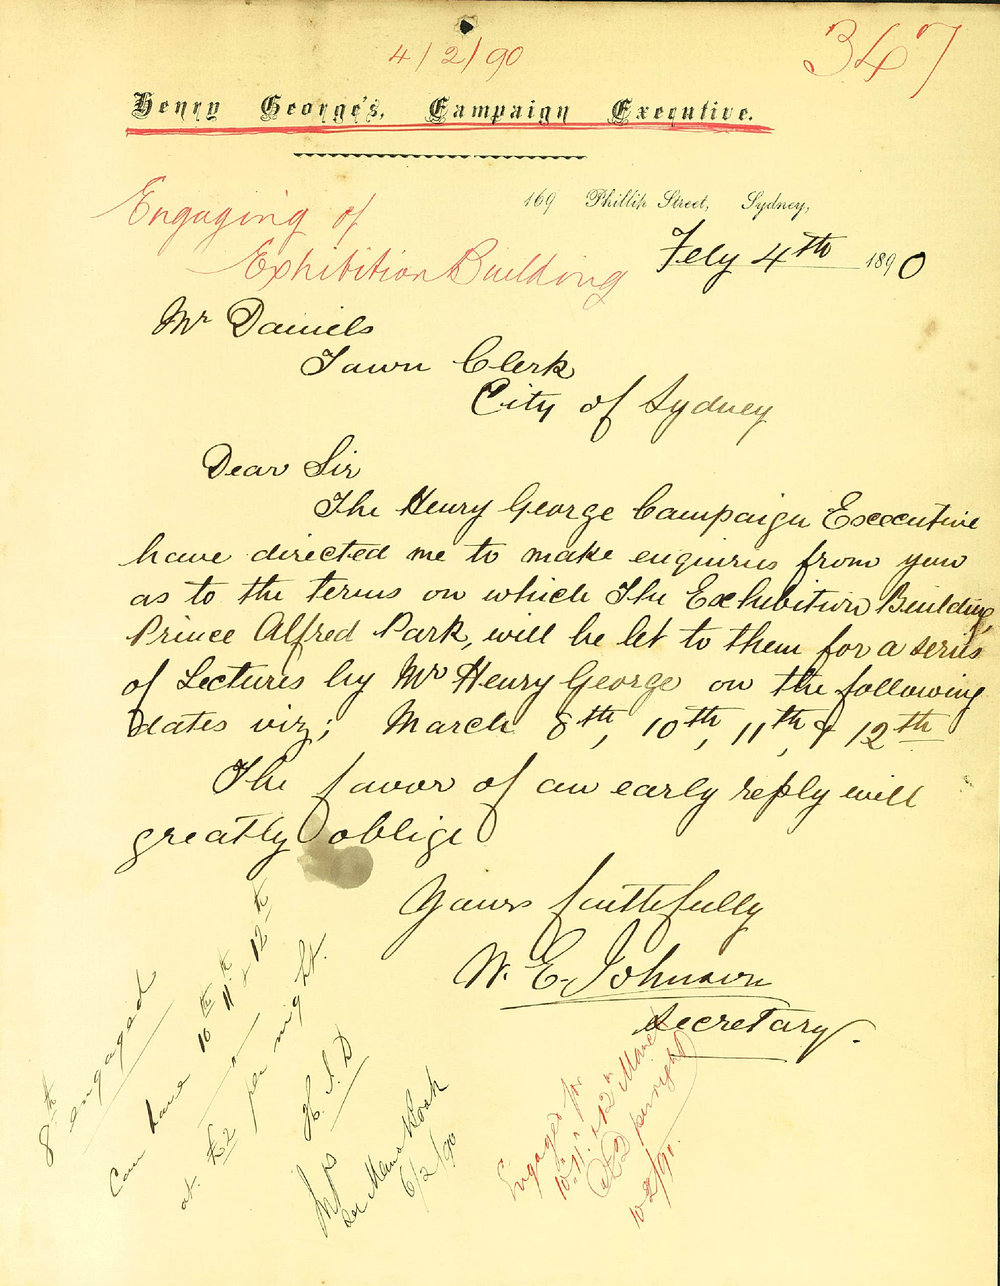 4/2/90
347
Henry George's, Campaign Executive.
169 Phillip Street, Sydney,
Engaging of
Exhibition Building
Feby 4th 1890
Mr Daniels
Town Clerk
City of Sydney
Dear Sir
The Henry George Campaign Excecutive
have directed me to make enquiries from you
as to the terms on which The Exhibition Building,
Prince Alfred Park, will be let to them for a series
of Lectures by Mr Henry George on the following
dates viz; March 8th, 10th, 11th, & 12th
The favor of an early reply will
greatly oblige
Yours faithfully
W. E. Johnson
Secretary.
8th engaged
Can have 10th 11th & 12th
at £2 per night.
H. S. D
6/2/90
Engaged for
10th 11th & 12th March
@ £2 per night
10/2/90.